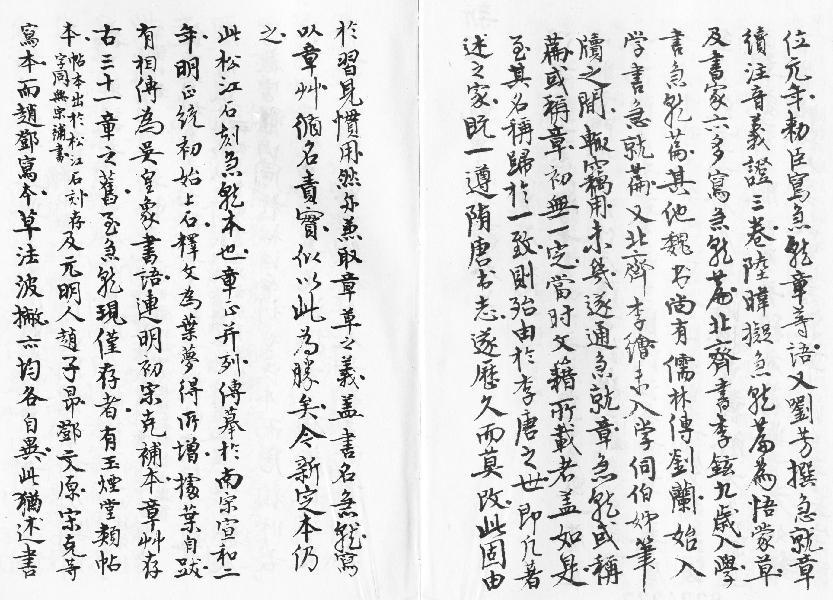 位元年敕臣寫急就章等語又劉芳撰急就章
續注音義證三卷陸暐擬急就篇為悟蒙章
及書家亦多寫急就篇北齊書李鉉九歲入學
書急就篇其他魏書尚有儒林傳劉蘭始入
學書急就篇又北齊李繪未入學伺伯姊筆
牘之間輒竊用未幾遂通急就章急就或稱
篇或稱章初無一定當時文籍所載者蓋如是
至其名稱歸於一致則殆由於李唐之世即凡著
述之家既一遵隋唐書志遂歷久而莫改此固由
於習見慣用然亦兼取章草之義蓋書名急就寫
以章艸循名責實似以此為勝矣今新定本仍
之
此松江石刻急就本也章正并列傳摹於南宋宣和二
年明正統初始上石釋文為葉夢得所增據葉自跋
有相傳為吳皇象書語連明初宋克補本章艸存
古三十一章之舊至急就現僅存者有玉煙堂類帖
本帖本出於松江石刻存字同無宋補書及元明人趙子昂鄧文原宋克等
寫本而趙鄧寫本草法波撇亦均各自異此猶述書